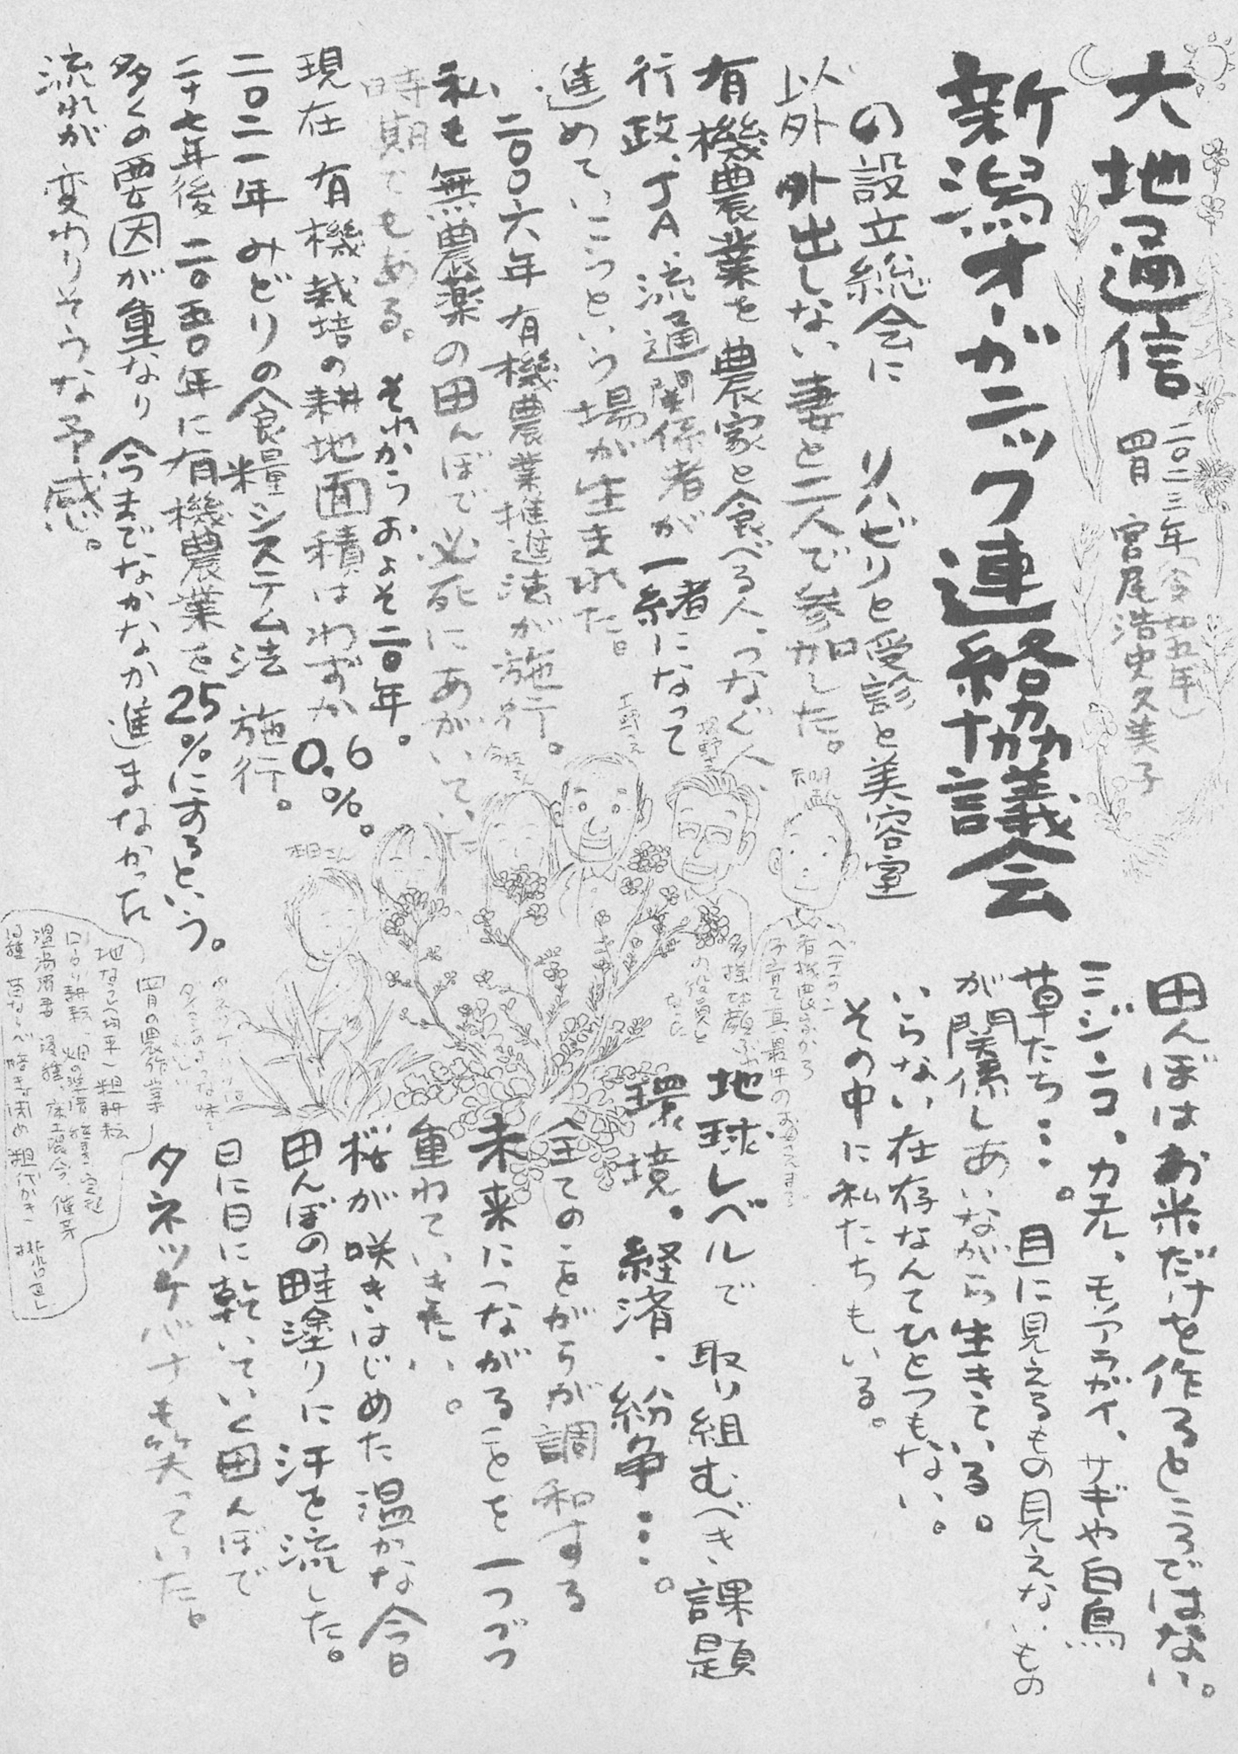 大地通信
二〇二三年(令和五年)
四月 宮尾浩史久美子
新潟オーガニック連絡協議会
の設立総会に リハビリと受診と美容室
以外 外出しない妻と二人で参加した。
有機農業を農家と食べる人、つなぐ人、
行政、JA、流通関係者が一緒になって
進めていこうという場が生まれた。
二〇〇六年 有機農業推進法が施行。
私も無農薬の田んぼで必死にあがいていた
時期でもある。 それからおよそ二〇年。
現在 有機栽培の耕地面積はわずか0.6%。
二〇二一年 みどりの食糧システム法 施行。
二十七年後 二〇五〇年に有機農業を25%にするという。
多くの要因が重なり 今までなかなか進まなかった
流れが 変わりそうな予感。
田んぼはお米だけを作るところではない。
ミジンコ、カエル、モノアラガイ、サギや白鳥
草たち…。 目に見えるもの見えないもの
が関係しあいながら生きている。
いらない在存なんてひとつもない。
その中に私たちもいる。
地球レベルで 取り組むべき課題
環境。経済、紛争…。
全てのことがらが調和する
未来につながることを一つづつ
重ねていきたい。
桜が咲きはじめた温かな今日
田んぼの畦塗りに汗を流した。
日に日に乾いていく田んぼで
タネツケバナも笑っていた。
ベテラン
有機農家から
子育て真最中のお母さんまで
多様な顔ぶれ
の役員と
なった
四月の農作業